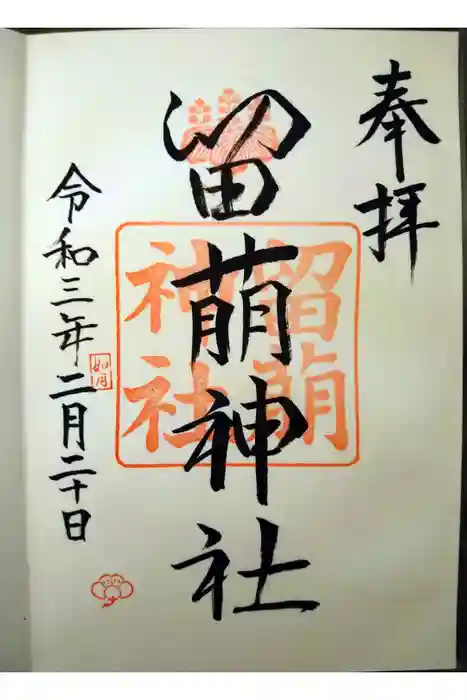 奉拝
留萌神社
留萌
神社
令和三年二月二十日
如月